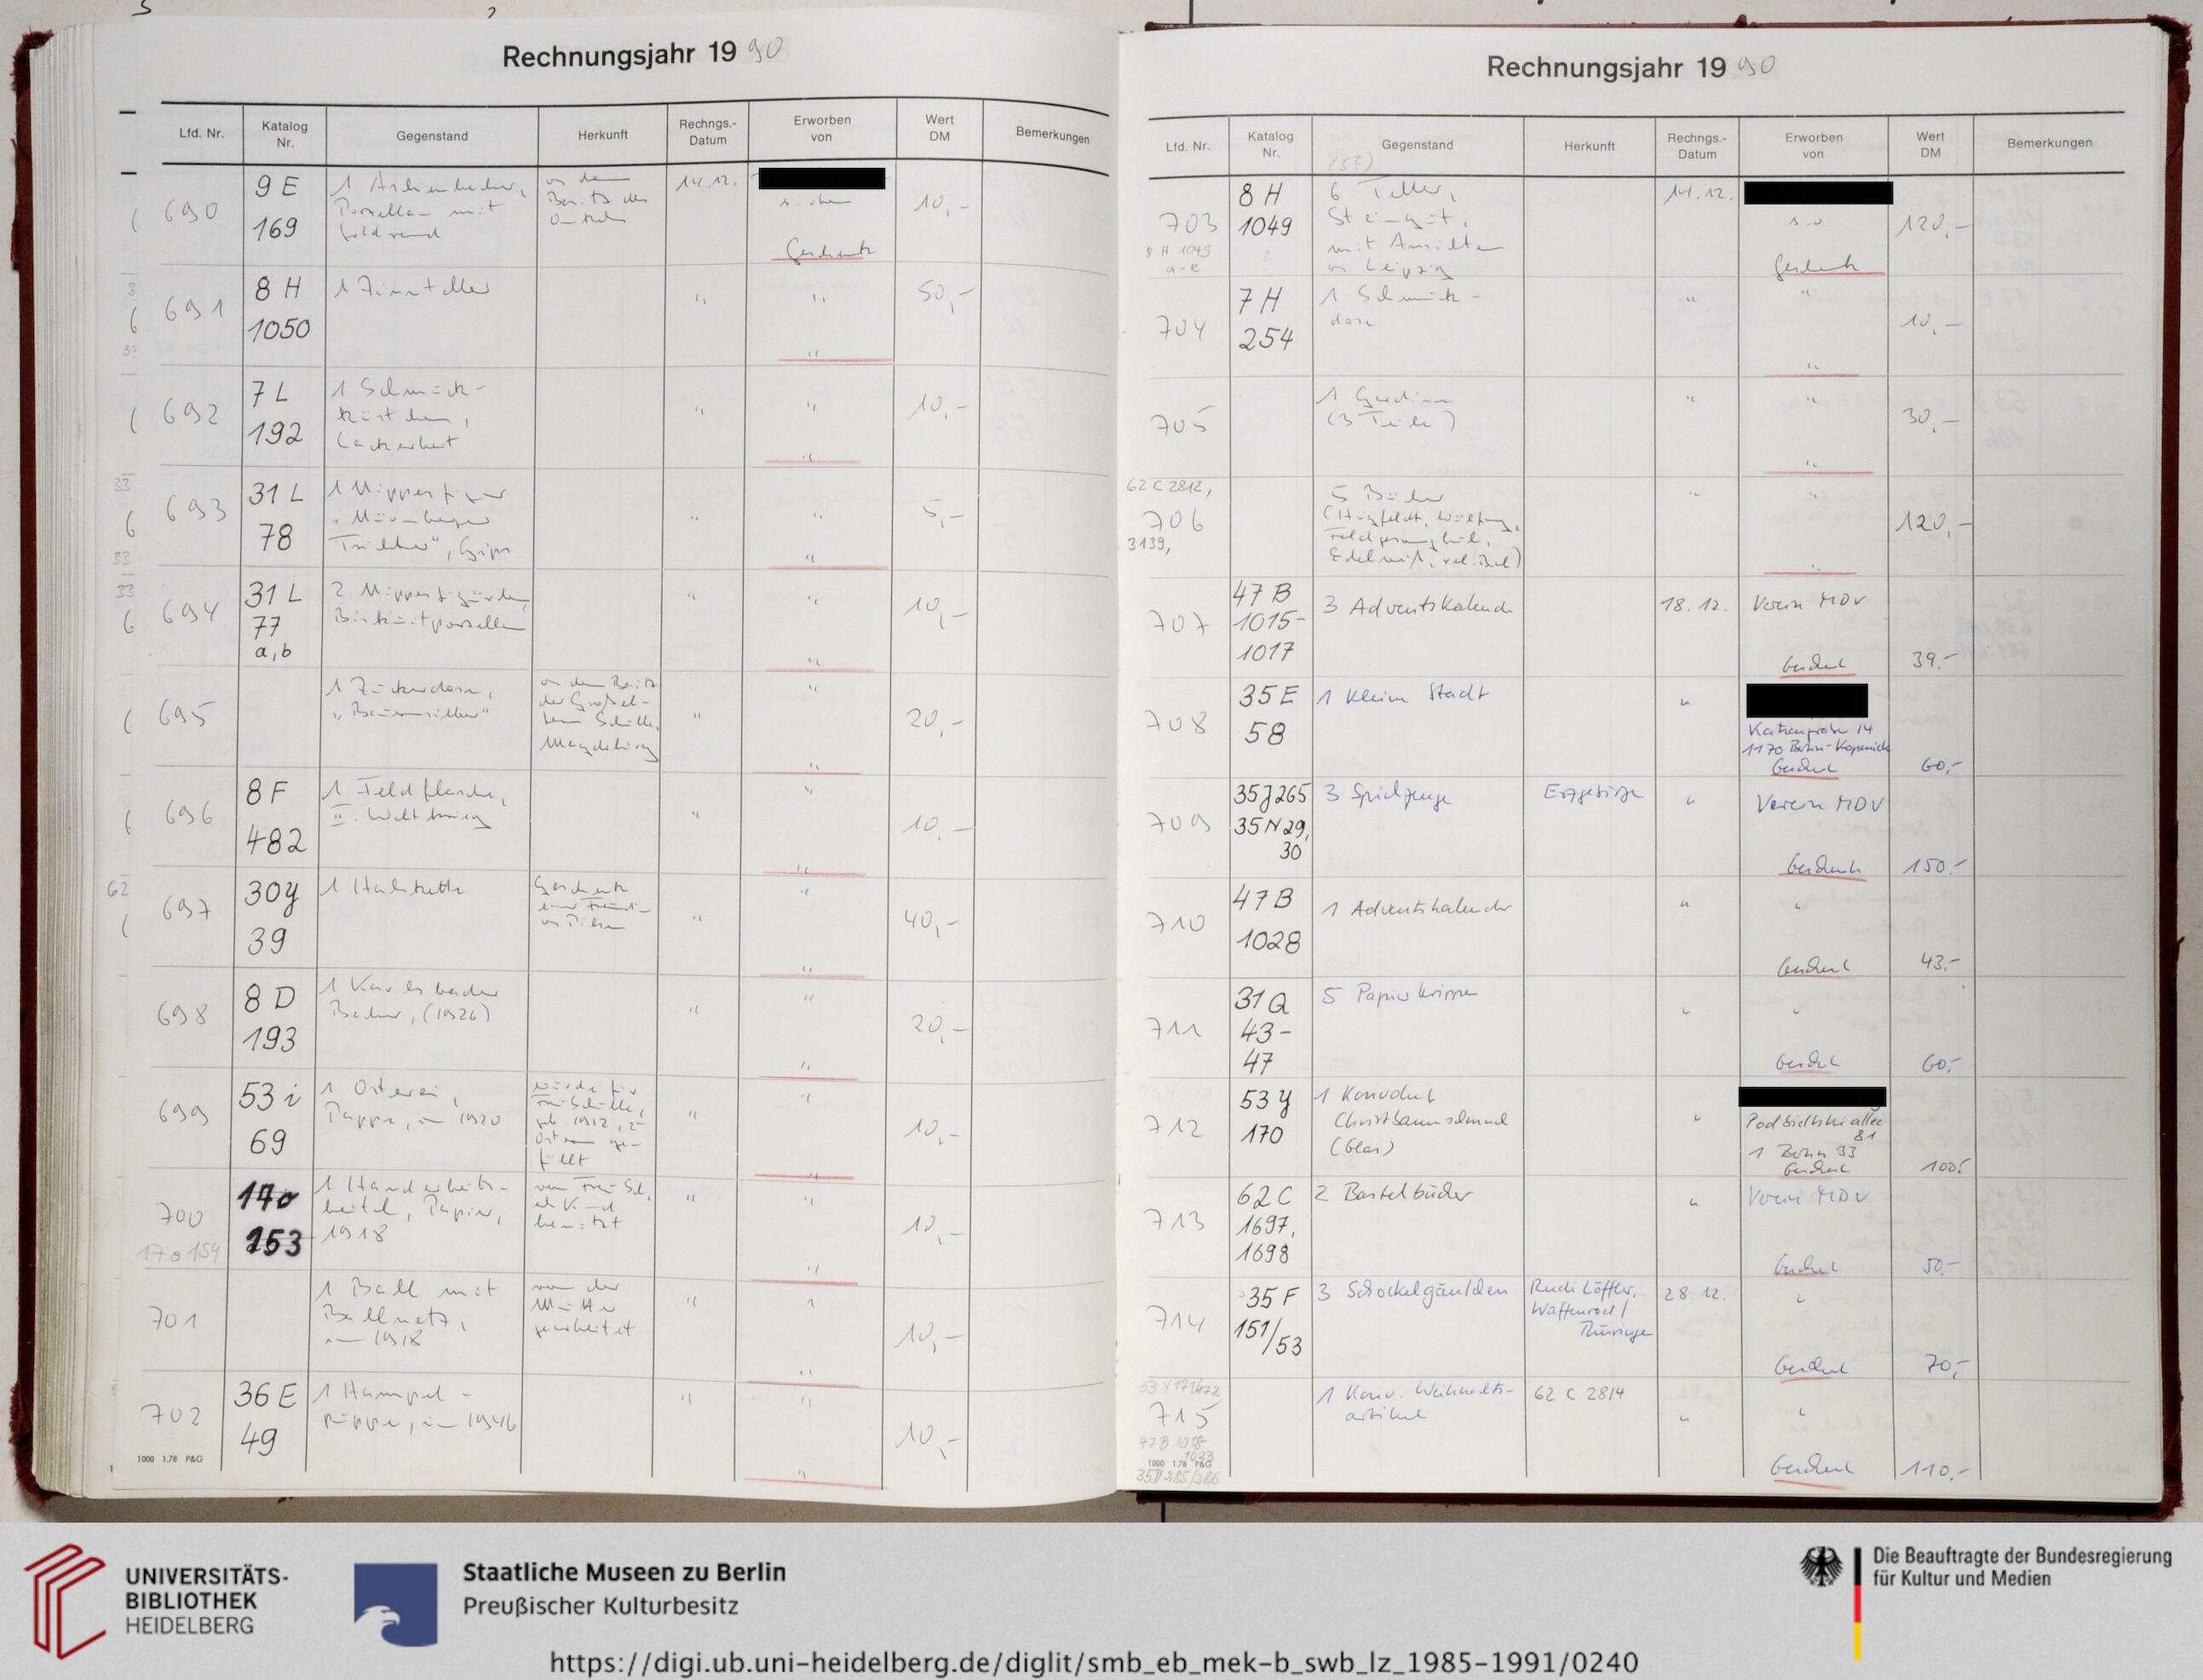 Rechnungsjahr 1990
Lfd. Nr.
Katalog Nr.
Gegenstand
Herkunft
Rechngs.-Datum
Erworben von
Wert DM
Bemerkungen
690
9 E
169
1 Aschenbecher,
Porzellan mit
Goldrand
aus dem
Besitz der
14.12.
s. oben
Geschenk
10,-
691
8 H
1050
1 Zinnteller
"
"
"
50,-
692
7 L
192
1 Schmuck-
kästchen,
Lackarbeit
"
"
"
10,-
693
31 L
78
1 Nippesfigur
"Nürnberger
Trichter", Gips
"
"
"
5,-
694
31 L
77
a, b
2 Nippesfigürchen,
Biskuitporzellan
"
"
"
10,-
695
1 Zuckerdose,
"Bauernsilber"
aus dem Besitz
der Großel-
tern Schulle,
Magdeburg
"
"
"
20,-
696
8 F
482
1 Feldflasche,
II. Weltkrieg
"
"
"
10,-
697
30 y
39
1 Halskette
Geschenk
einer Freundin
"
"
"
40,-
698
8 D
193
1 Karlsbader
Becher, (1926)
"
"
"
20,-
699
53 i
69
1 Osterei,
Pappe, um 1920
wurde für
Frau Schulle,
geb. 1912, zu
Ostern ge-
füllt
"
"
"
10,-
700
17 o 154
17 o
153
1 Handarbeits-
beutel, Papier,
1918
von Frau Sch.
als Kind
benutzt
"
"
"
10,-
701
1 Ball mit
Ballnetz,
um 1918
von der
Mutter
gearbeitet
"
"
"
10,-
702
36 E
49
1 Hampel-
puppe, um 1946
"
"
"
10,-
1000 1.78 P&G
Rechnungsjahr 1990
Lfd. Nr.
Katalog Nr.
Gegenstand
Herkunft
Rechngs.-Datum
Erworben von
Wert DM
Bemerkungen
703
8 H 1049
a-e
8 H
1049
6 Teller,
Steingut,
mit Ansichten
aus Leipzig
14.12.
s. o.
Geschenk
120,-
704
7 H
254
1 Schmuck-
dose
"
"
"
10,-
705
1 Gardine
(3 Teile)
"
"
"
30,-
62 C 2812,
706
3139,
5 Bücher
"
"
"
120,-
707
47 B
1015-
1017
3 Adventskalender
18.12.
Verein MDV
Geschenk
39.-
708
35 E
58
1 kleine Stadt
"
1170 Berlin-Köpenick
Geschenk
60,-
709
35 J 265
35 N 29,
30
3 Spielzeuge
Erzgebirge
"
Verein MDV
Geschenk
150.-
710
47 B
1028
1 Adventskalender
"
"
Geschenk
43.-
711
31 Q
43-
47
5 Papierkrippen
"
"
Geschenk
60,-
712
53 y
170
1 Konvolut
Christbaumschmuck
(Glas)
"
Podbielskiallee
81
1 Berlin 33
Geschenk
100,-
713
62 C
1697,
1698
2 Bastelbücher
"
Verein MDV
Geschenk
50.-
714
35 F
151/53
3 Schockelgäulchen
Rudi Löffler,
Waffenrod/
Thüringen
28.12.
"
Geschenk
70,-
53 Y 171/172
715
47 B 1018-
1023
35 D 285/286
1 Konv. Weihnachts-
artikel
62 C 2814
"
"
Geschenk
110,-
1000 1.78 P&G
UNIVERSITÄTS-
BIBLIOTHEK
HEIDELBERG
Staatliche Museen zu Berlin
Preußischer Kulturbesitz
Die Beauftragte der Bundesregierung
für Kultur und Medien
https://digi.ub.uni-heidelberg.de/diglit/smb_eb_mek-b_swb_lz_1985-1991/0240